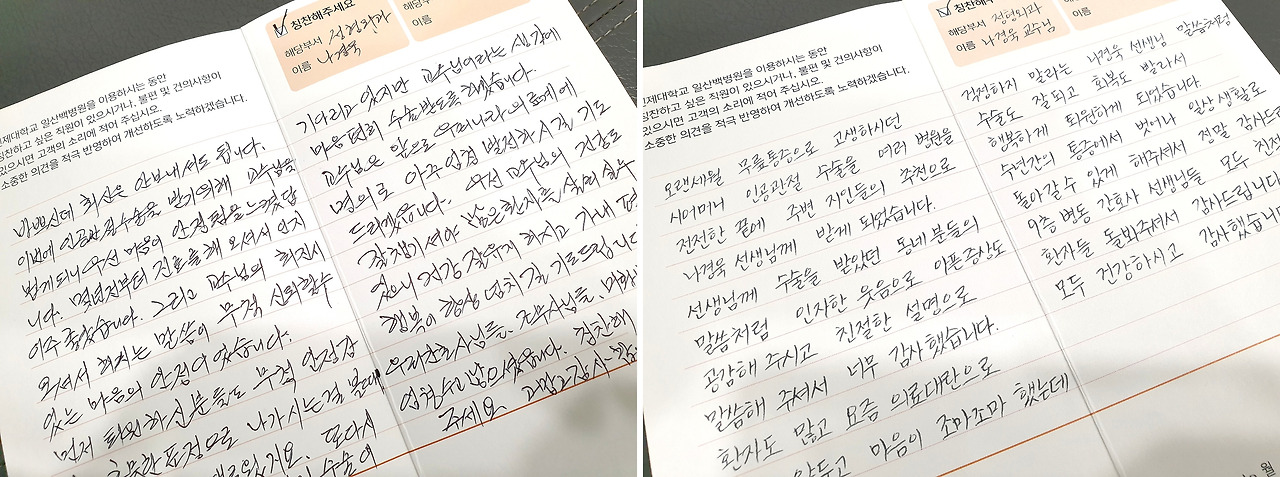 인제대학교 일산백병원을 이용하시는 동안
칭찬하고 싶은 직원이 있으시거나, 불편 및 건의사항이
있으시면 고객의 소리에 적어 주십시오.
소중한 의견을 적극 반영하여 개선하도록 노력하겠습니다.
바쁘신데 회신은 안보내셔도 됩니다.
이번에 인공관절수술을 받기위해 교수님을
뵙게되니 우선 마음이 안정됨을 느꼈답
니다. 몇년전부터 진료를 해 오셔서 인지
아주 좋았습니다. 그리고 교수님의 회진시
오셔서 하시는 말씀이 무척 신뢰할수
있는 마음의 안정이 있었습니다.
먼저 퇴원하신분들도 무척 안정감
표정으로 나가시는걸 볼때
또다시
수술이
칭찬해주세요
해당부서 정형외과
이름 나경욱
해당부
이름
기다리고 있지만 교수님이라는 생각에
마음편히 수술받도록 하겠습니다.
교수님은 앞으로 우리나라 의료계에
명의로 아주 엄청 발전하시길 기도
드리겠습니다. 우선 교수님의 건강도
잘챙기셔야 많은환자를 살리실수
있으니 건강 잘유지 하시고 가내 평
행복이 항상 넘치길 기도드립니다
간호사님들,
주세요 고맙고 감사
칭찬해주
해당부서 정형외과
이름 나경욱 교수님
해당부
이름
인제대학교 일산백병원을 이용하시는 동안
칭찬하고 싶은 직원이 있으시거나, 불편 및 건의사항이
있으시면 고객의 소리에 적어 주십시오.
소중한 의견을 적극 반영하여 개선하도록 노력하겠습니다.
오랜세월 무릎통증으로 고생하시던
시어머니 인공관절 수술을 여러 병원을
전전한 끝에 주변 지인들의 추천으로
나경욱 선생님께 받게 되었습니다.
선생님께 수술을 받았던 동네 분들의
말씀처럼 인자한 웃음으로 아픈증상도
공감해 주시고 친절한 설명으로
말씀해 주셔서 너무 감사했습니다.
환자도 많고 요즘 의료대란으로
앞두고 마음이 조마조마 했는데
걱정하지 말라는 나경욱 선생님 말씀처럼
수술도 잘되고 회복도 빨라서
행복하게 퇴원하게 되었습니다.
수년간의 통증에서 벗어나 일상생활로
돌아갈 수 있게 해주셔서 정말 감사드
9층 병동 간호사 선생님들 모두 친절
환자들 돌봐주셔서 감사드립니다
모두 건강하시고 감사했습니
월